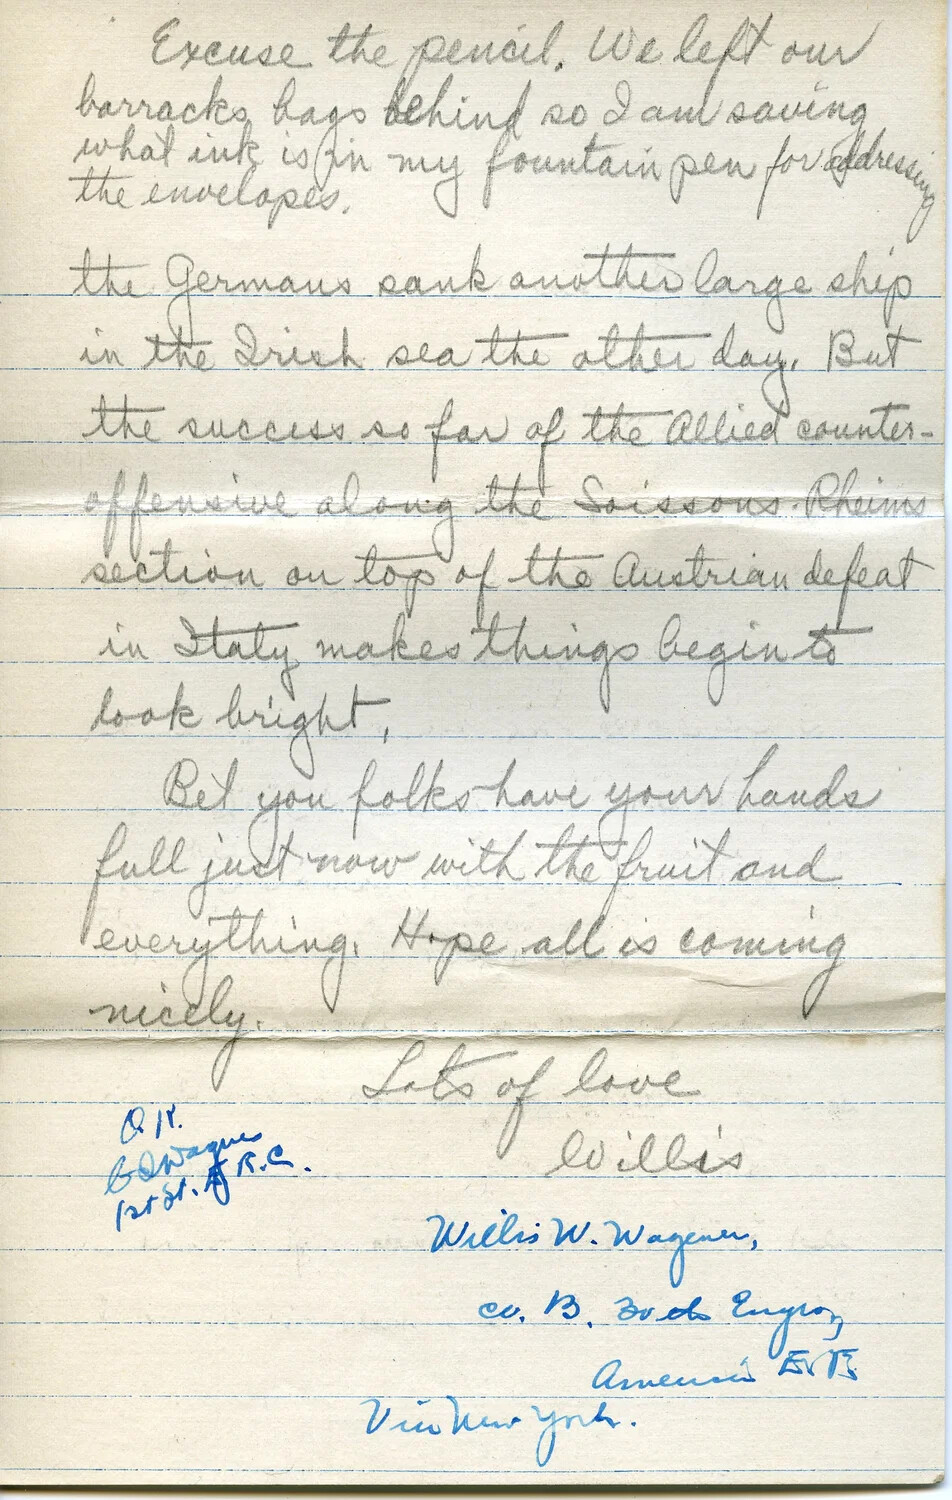 Excuse the pencil. We left our
barracks bags behind so I am saving
what ink is in my fountain pen for addressing
the envelopes.
the Germans sank another large ship
in the Irish sea the other day. But
the success so far of the Allied counter-
offensive along the Soissons-Rheims
section on top of the Austrian defeat
in Italy makes things begin to
look bright.
Bet you folks have your hands
full just now with the fruit and
everything. Hope all is coming
nicely.
Lots of love
Willis
O.K.
Wagner
1st Lt. R.C.
Willis W. Wagener,
Co. B.
Via New York.